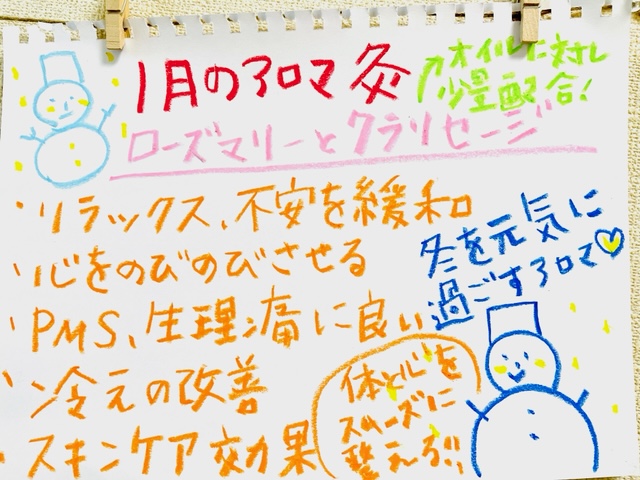 1月のアロマ灸
オイルに対し
少量配合!
ローズマリーとクラリセージ
・リラックス、不安を緩和
・心をのびのびさせる
・PMS、生理痛に良い
・冷えの改善
・スキンケア効果
冬を元気に
過ごすアロマ♡
体と心を
スムーズに
整える!!